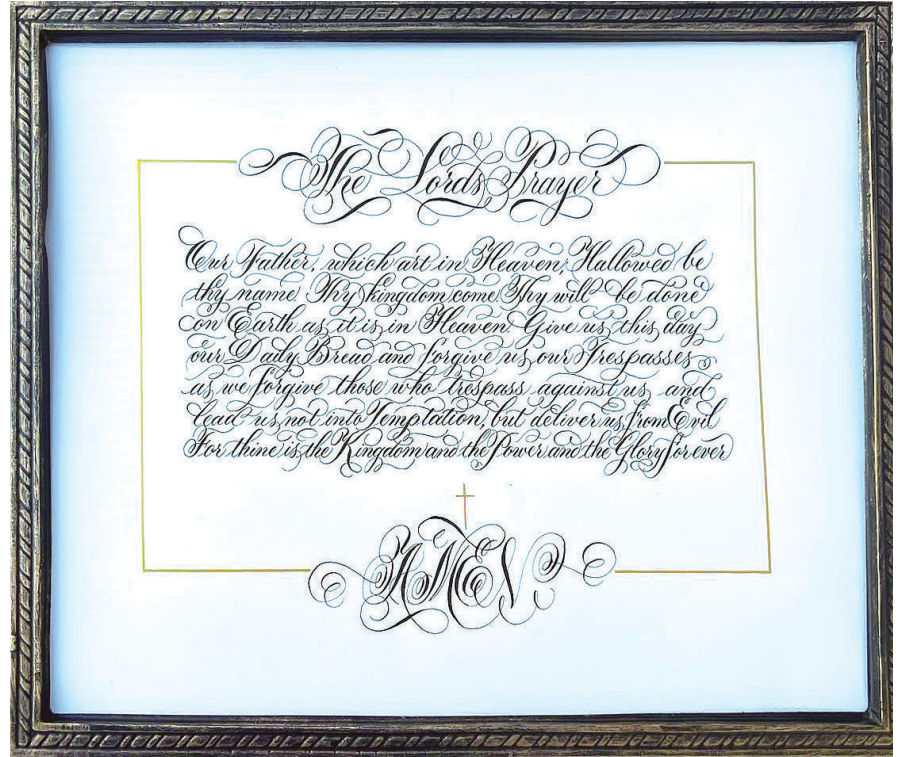 The Lords Prayer
Our Father, which art in Heaven, Hallowed be
thy name Thy kingdom come Thy will be done
on Earth as it is in Heaven. Give us this day
our Daily Bread and forgive us our Trespasses
as we forgive those who trespass against us and
lead us not into Temptation, but deliver us from Evil
For thine is the Kingdom and the Power and the Glory for ever
AMEN